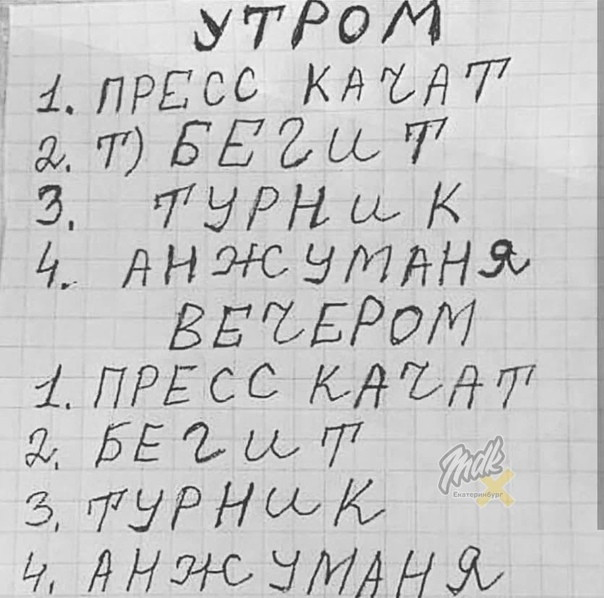 УТРОМ
1. ПРЕСС КАЧАТ
2. Т) БЕГИТ
3. ТУРНИК
4. АНЖУМАНЯ
ВЕЧЕРОМ
1. ПРЕСС КАЧАТ
2. БЕГИТ
3. ТУРНИК
4. АНЖУМАНЯ
Mdk
Екатеринбург